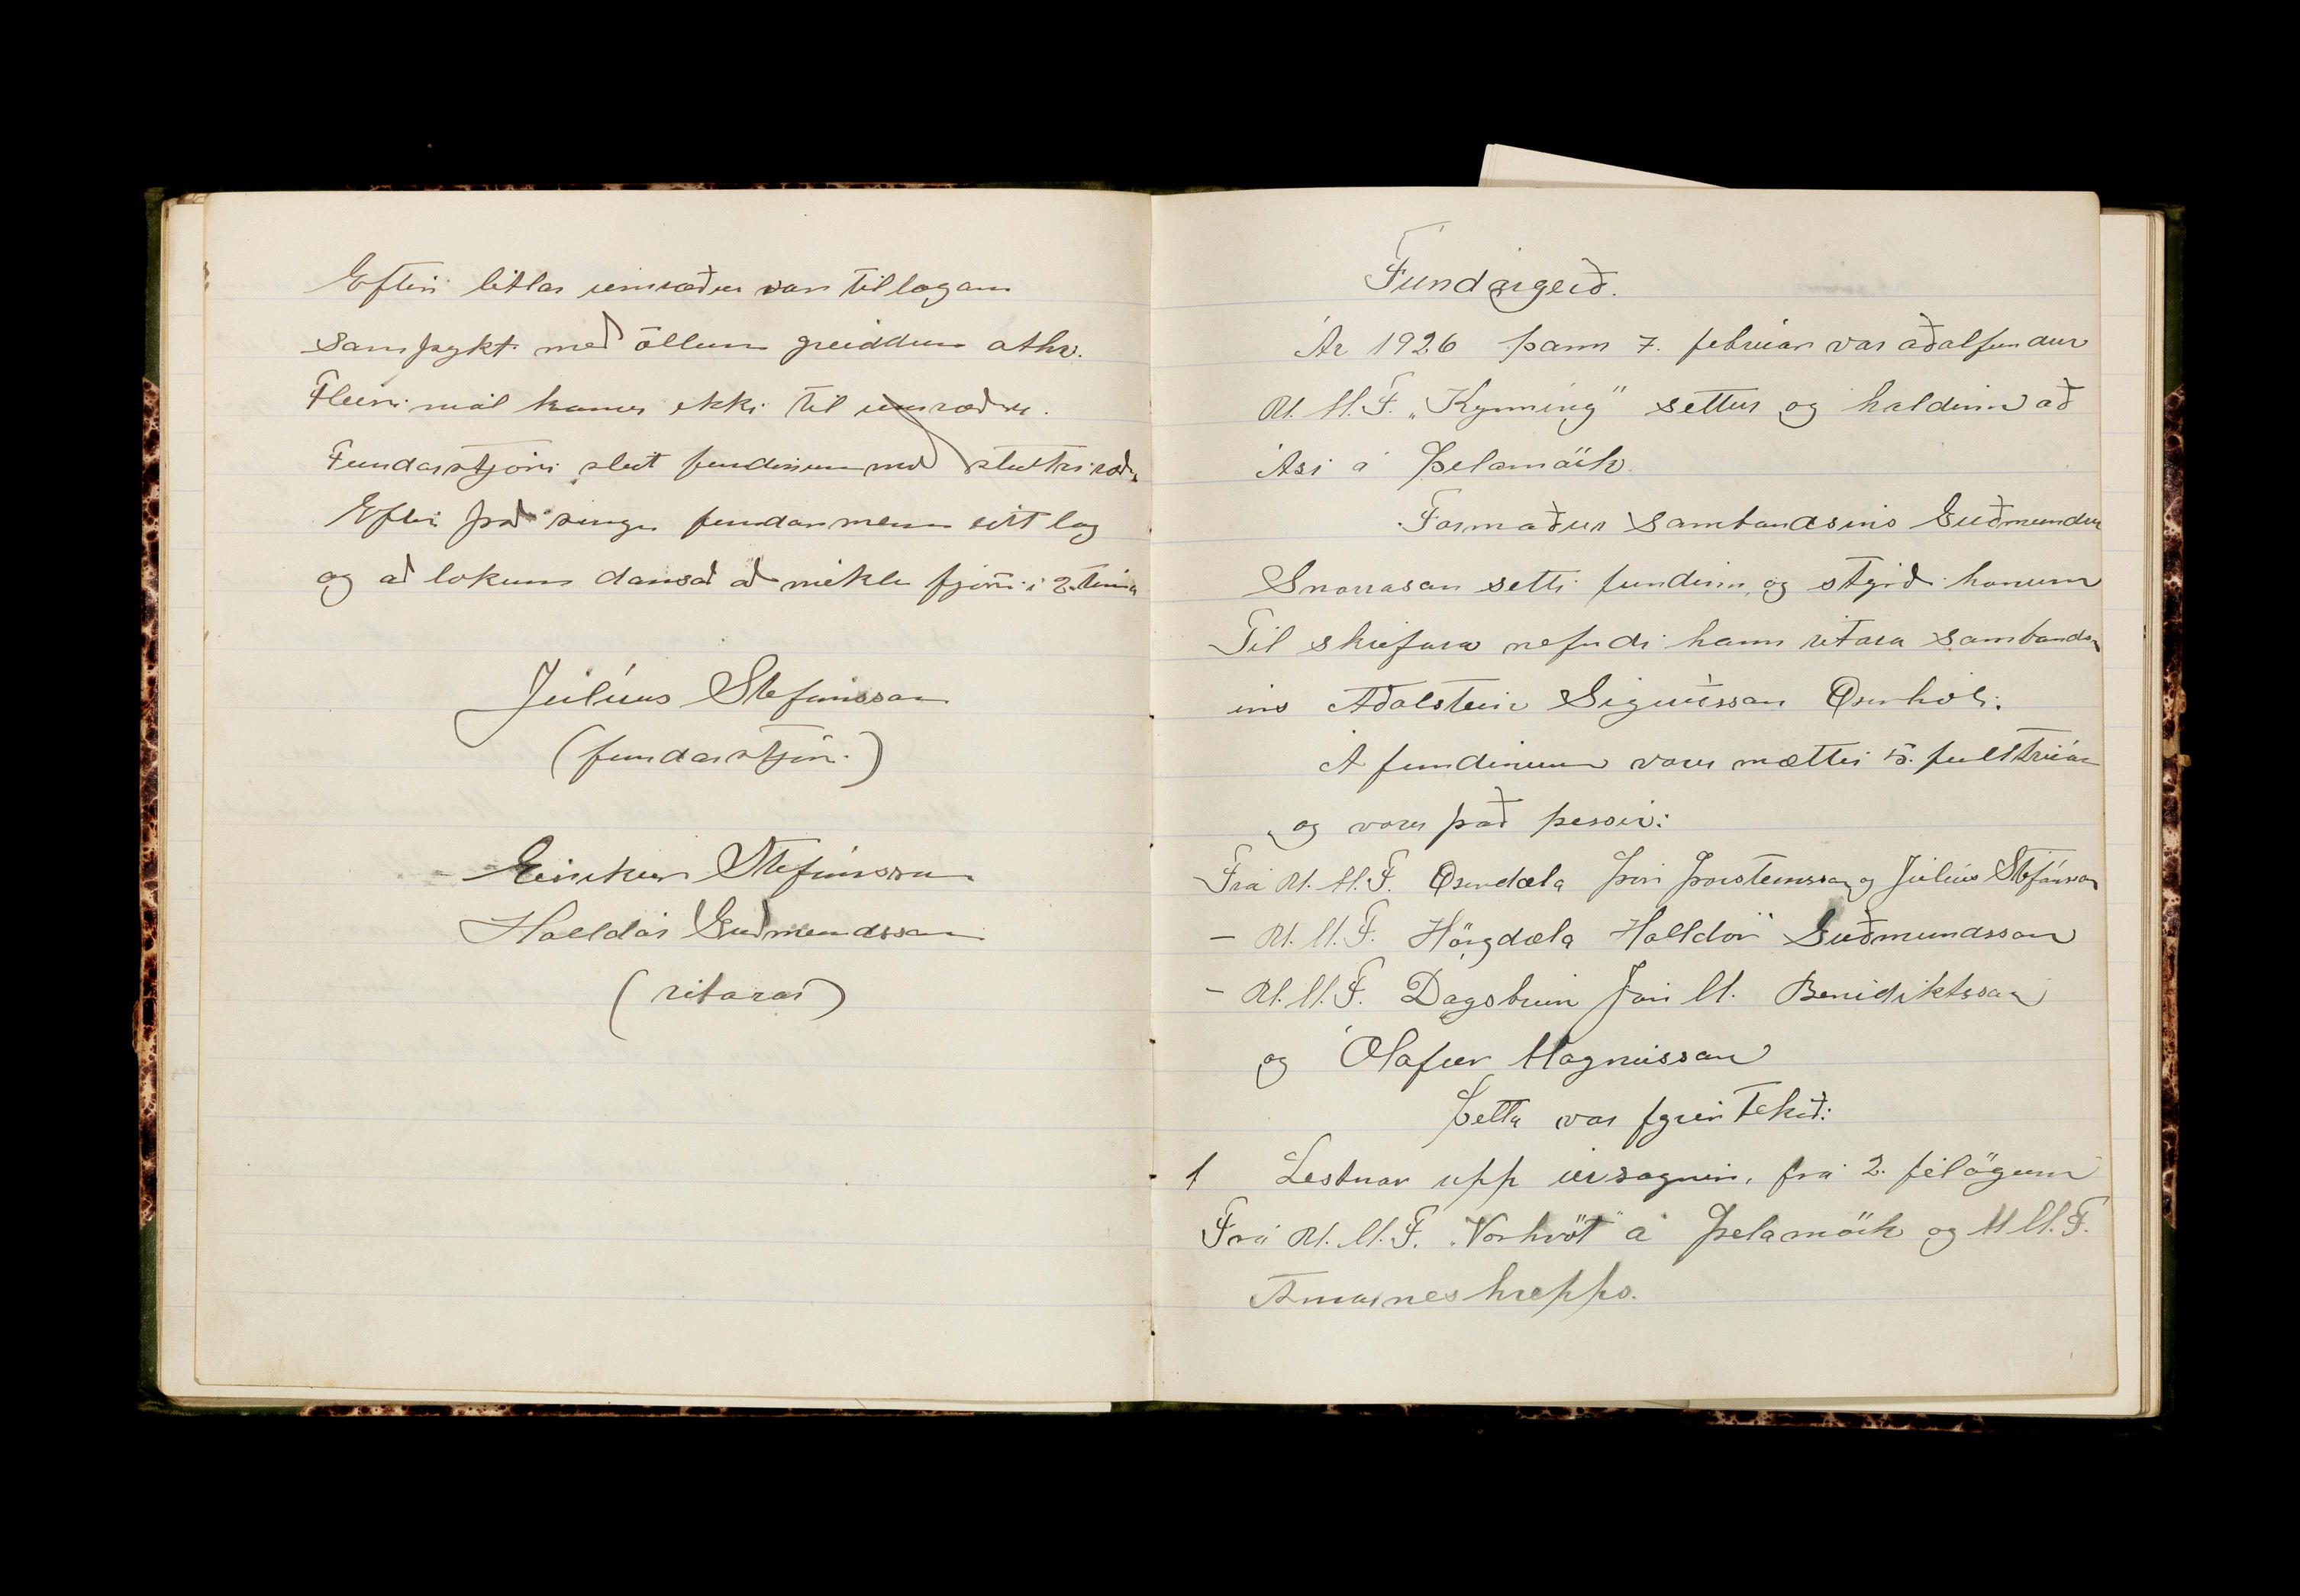 Eftir litlar umræður var tillagan
samþykt með öllum greiddum atkv.
Fleiri mál komu ekki til umræðu.
Fundarstjóri sleit fundinum með stuttri ræðu
Eftir það sungu fundarmenn eitt lag
og að lokum dansað að miklu fjöri í 2. tíma
Júlíus Stefánsson
(fundarstjóri.)
Eiríkur Stefánsson
Halldór Guðmundsson
(ritarar)
Fundargerð.
Ár 1926 þann 7. febrúar var aðalfundur
U. M. F. „Kynning" settur og haldinn að
Ási á Þelamörk.
Formaður Sambandsins Guðmundur
Snorrason setti fundinn, og stýrði honum
Til skrifara nefndi hann ritara Sambands-
ins Aðalstein Sigurðsson Öxnhóli.
Á fundinum voru mættir 5. fulltrúar
og voru það þessir:
Frá U. M. F. Öxndæla Þorsteinsson og Júlíus Stefánsson
- U. M. F. Hörgdæla Halldór Guðmundsson
- U. M. F. Dagsbrún Jón M. Benidiktsson
og Ólafur Magnússon
Þetta var fyrir tekið:
1 Lestnar upp úrsagnir, frá 2. félögum
Frá U. M. F. „Vorhvöt" á Þelamörk og U M. F.
Arnarneshrepps.